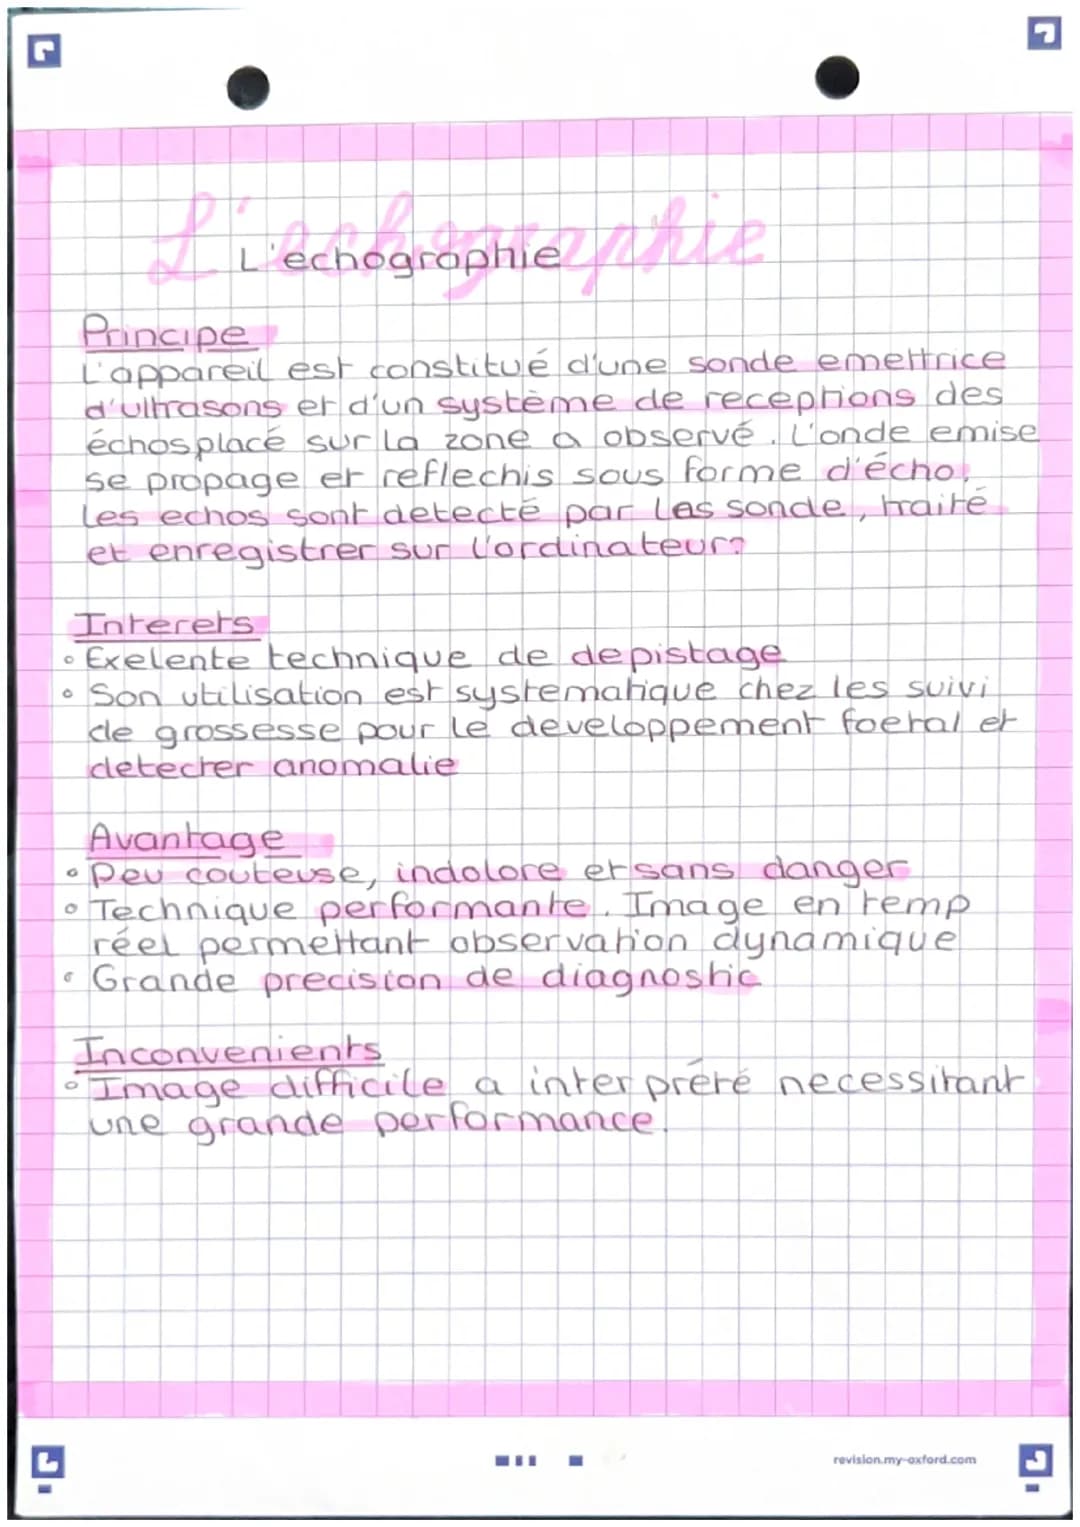 L'echographie
Principe
L'appareil est constitué d'une sonde emettrice
d'ultrasons et d'un système de receptions des
échos placé sur la zone a observé. L'onde emise
se propage et reflechis sous forme d'écho.
Les echos sont detecté par las sonde, traité
et enregistrer sur l'ordinateur.
Interets
• Exelente technique de depistage
• Son utilisation est systematique chez les suivi
de grossesse pour le developpement foetal et
detecter anomalie
Avantage
• Peu couteuse, indolore et sans danger
• Technique performante. Image en temp
réel permettant observation dynamique
• Grande precision de diagnostic
Inconvenients
• Image difficile a interprété necessitant
une grande performance.
revision.my-oxford.com